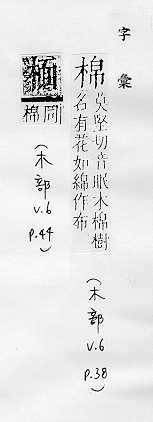 字彙
棉
莫堅切音眠木棉樹
名有花如綿作布
（木部 v.6 p.38）
同棉
（木部 v.6 p.44）